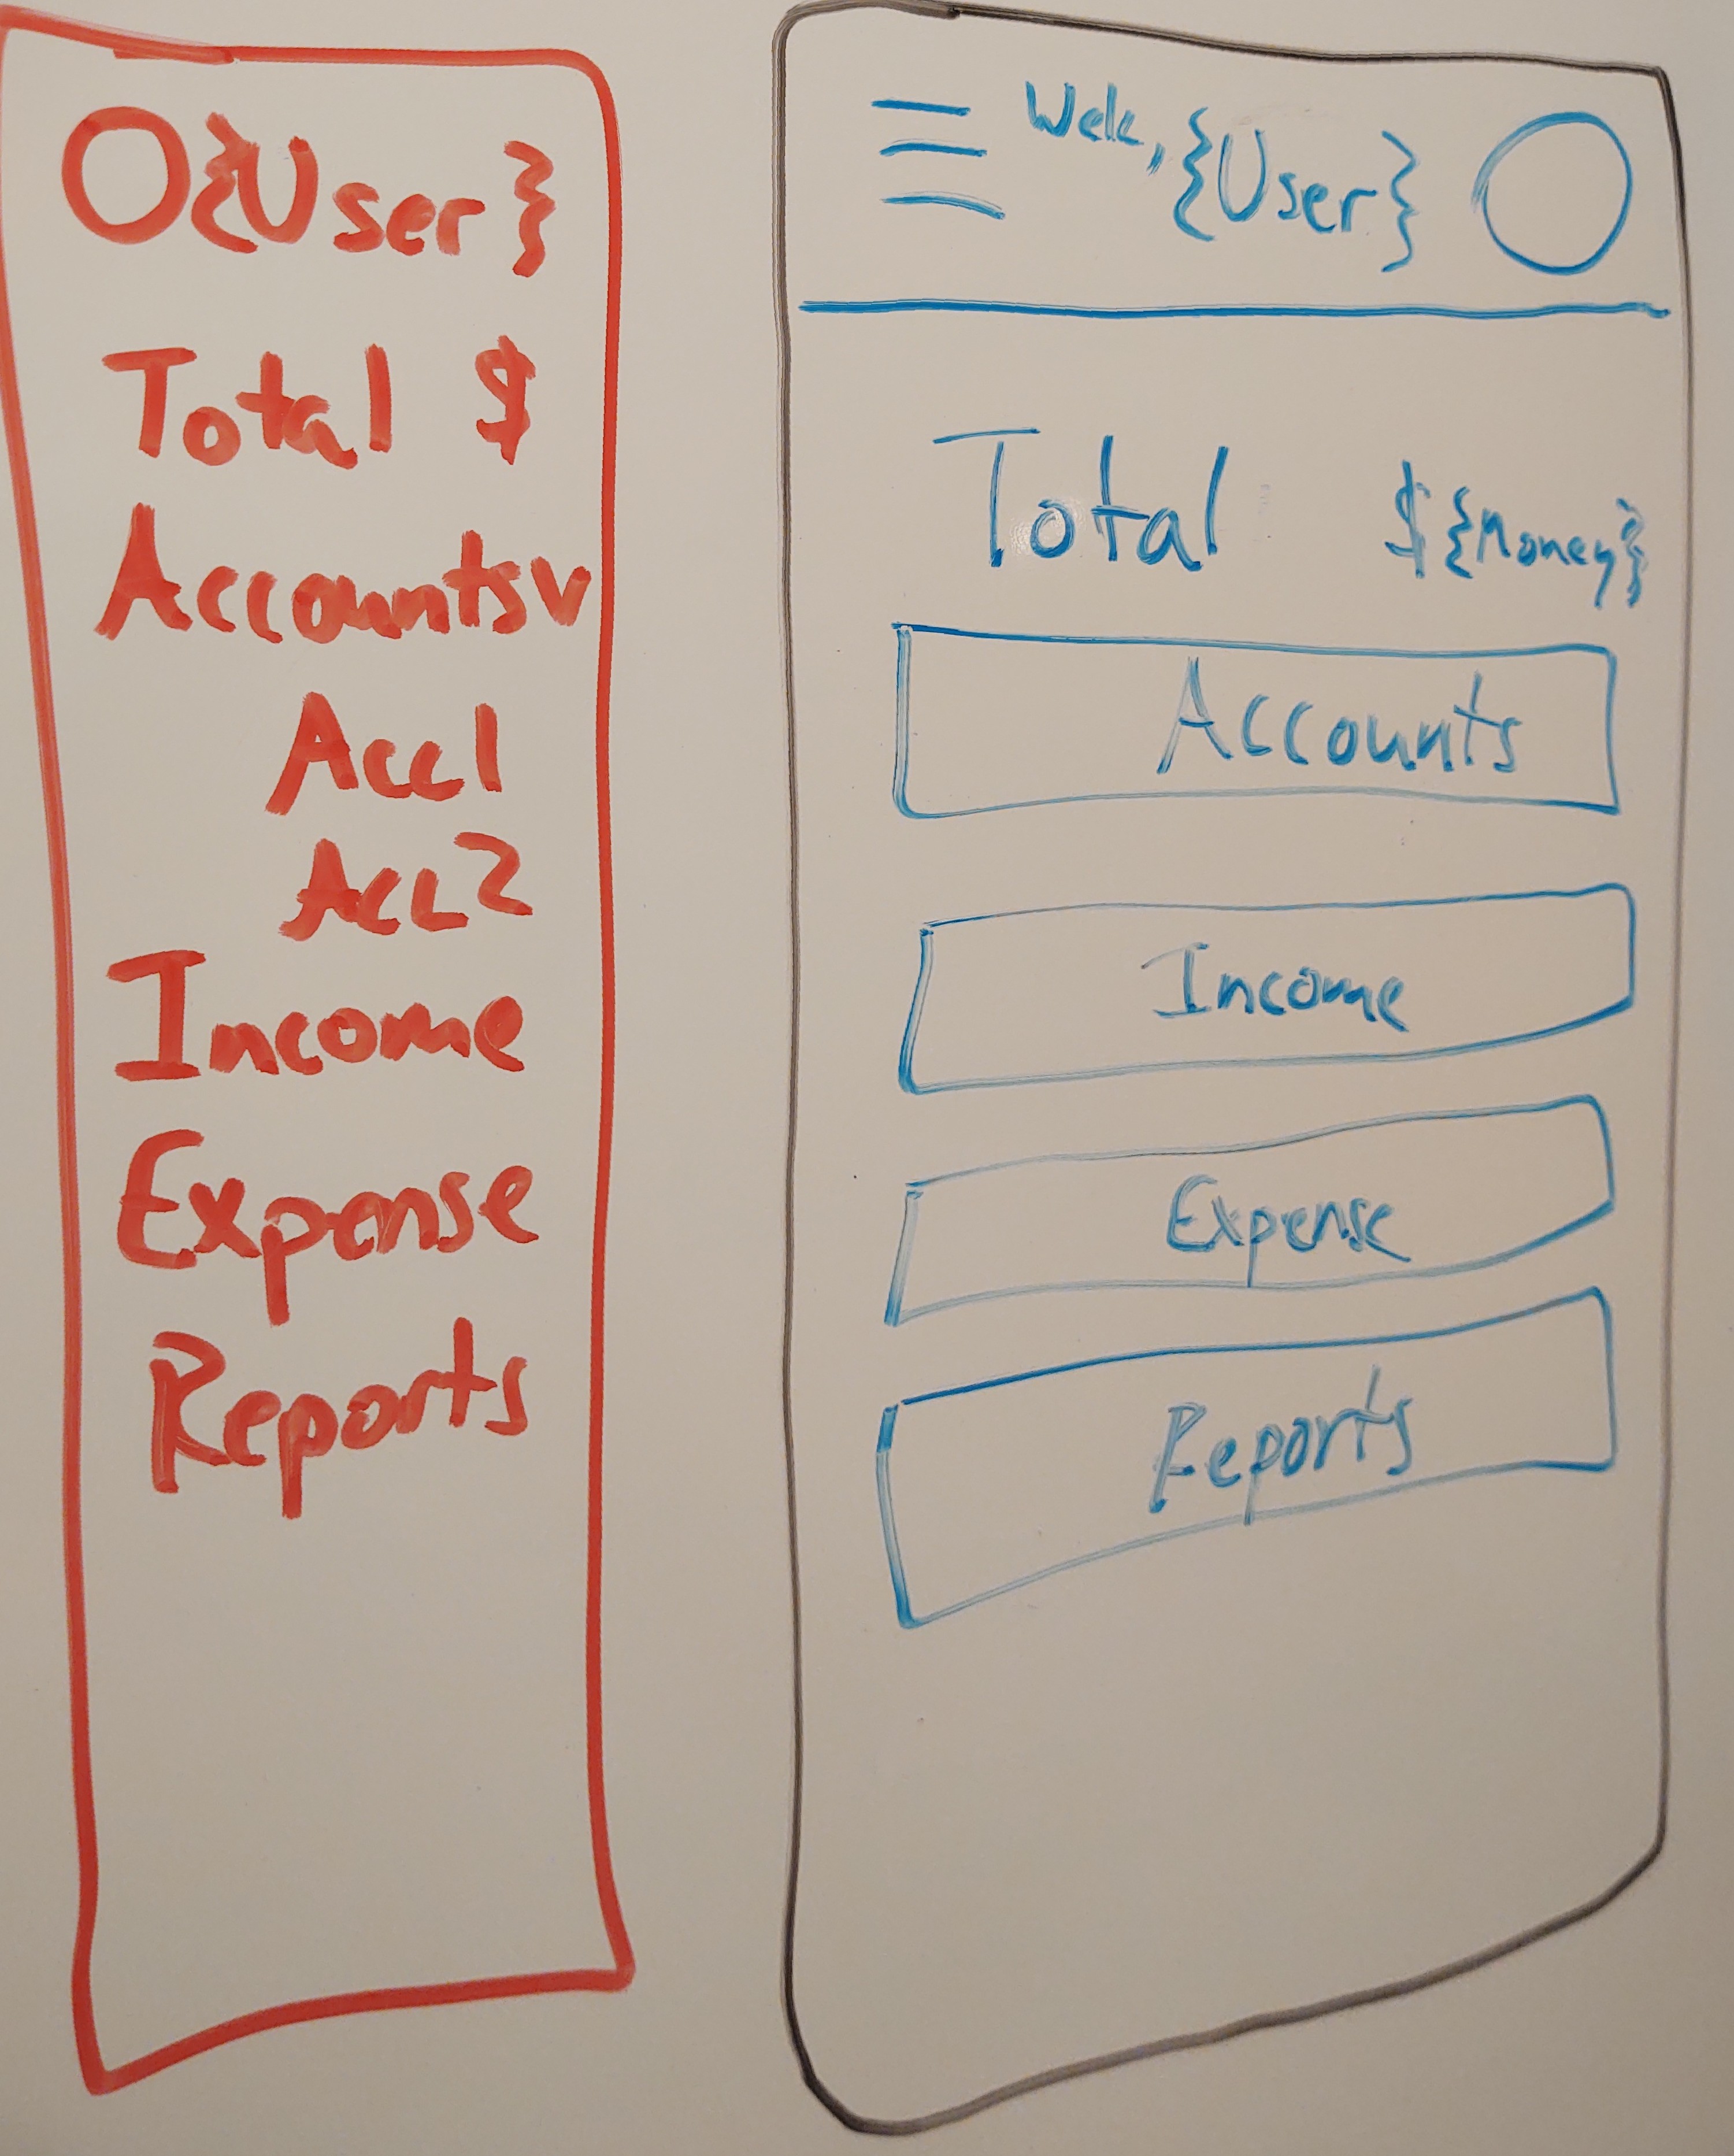 {User}
Total $
Accounts v
Acc1
Acc2
Income
Expense
Reports
Welc, {User}
Total ${Money}
Accounts
Income
Expense
Reports